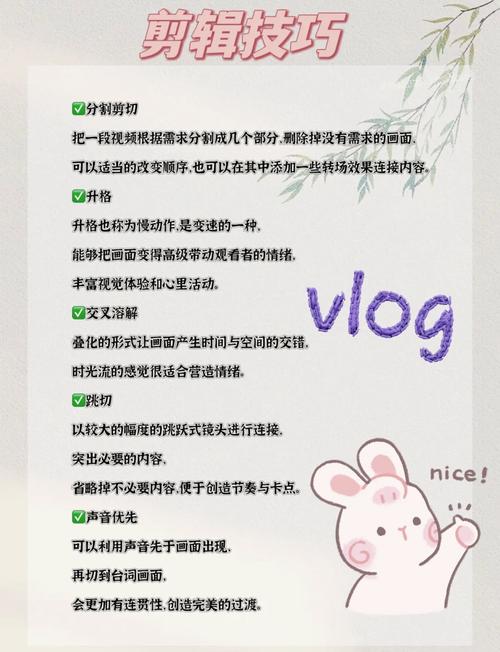 剪辑技巧
✅分割剪切
把一段视频根据需求分割成几个部分,删除掉没有需求的画面,
可以适当的改变顺序,也可以在其中添加一些转场效果连接内容。
✅升格
升格也称为慢动作,是变速的一种,
能够把画面变得高级带动观看者的情绪,
丰富视觉体验和心里活动。
vlog
✅交叉溶解
叠化的形式让画面产生时间与空间的交错,
时光流的感觉很适合营造情绪。
✅跳切
以较大的幅度的跳跃式镜头进行连接,
突出必要的内容,
省略掉不必要内容,便于创造节奏与卡点。
nice!
✅声音优先
可以利用声音先于画面出现,
再切到台词画面,
会更加有连贯性,创造完美的过渡。